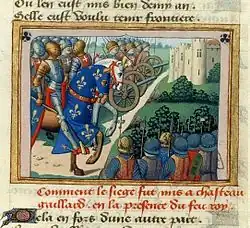 Ou len eust mis bien demy an.
Celle eust voulu tenir frontiere.
Comment le siege fut mis a chasteau
gaillard. en la presence du feu roy.
Dela en fors dune autre part.